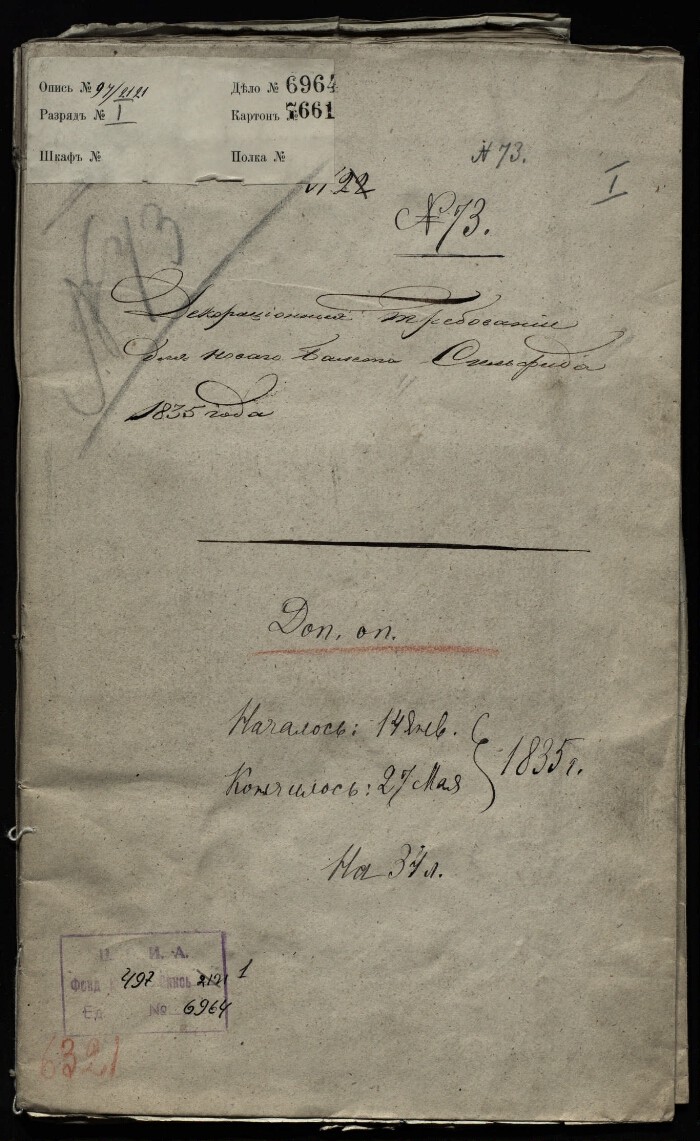 Опись № 97/2121
Дѣло № 6964
Разрядъ № I
Картонъ № 7661
Шкафъ №
Полка №
N 73.
I
№ 22
№ 73.
№ 73
Декораціонныя требованіи
для новаго балета Сильфида
1835 года
Доп. оп.
Началось: 14 Янв.
Кончилось: 27 Мая
1835 г.
На 34 л.
И. А.
Фонд 497 опись 2121 1
Ед. № 6964
6321